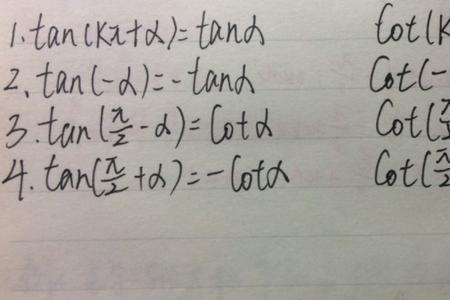 1. tan(Kπ+α)=tanα Cot(K
2、tan(-α)=-tanα Cot(-
3. tan(π/2-α)=Cotα Cot(π/
4. tan(π/2+α)=-Cotα Cot(π/2